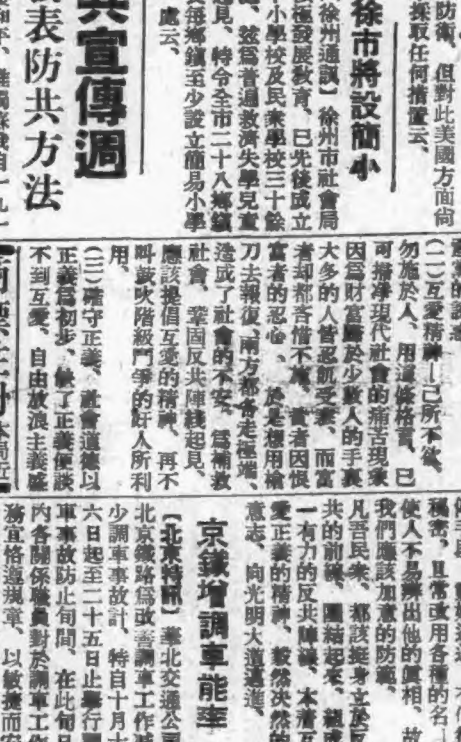 防衛、但對此美國方面尙
採取任何措置云、
徐市將設簡小
徐州通訊】徐州市社會局
極發展敎育、已先後成立
小學校及民衆學校三十餘
玆爲普遍救濟失學兒童
見、特令全市二十八鄉鎭
每鄉鎭至少設立簡易小學
處云、
共宣傳週
表防共方法
(二)互愛精神—己所不欲、
勿施於人、用這條格言、已
可揩淨現代社會的痛苦現象
因爲財富歸於少數人的手裏
大多的人皆忍飢受寒、而富
者却都吝惜不捨、貧者因恨
富者的忍心、於是想用槍
刀去報復、兩方都各走極端、
造成了社會的不安、爲補救
社會、鞏固反共陣綫起見、
應該提倡互愛的精神、再不
叫鼓吹階級鬥爭的奸人所利
用、
(三)確守正義、社會道德以
正義爲初步、缺了正義便談
不到互愛、自由放浪主義盛
秘密、且常改用各種的名
使人不易辨出他的眞相、故
我們應該加意的防範、
凡吾民衆、都該挺身立於反
共的前綫、團結起來、組成
一有力的反共陣綫、本着互
愛正義的精神、毅然决然的
意志、向光明大道邁進、
京鐵增調車能率
【北京特訊】華北交通公
北京鐵路爲改善調車工作減
少調車事故計、特自十月十
六日起至二十五日止舉行調
車事故防止旬間、在此旬日
內各關係職員對於調車工作
務宜恪遵規章、以敏捷而安